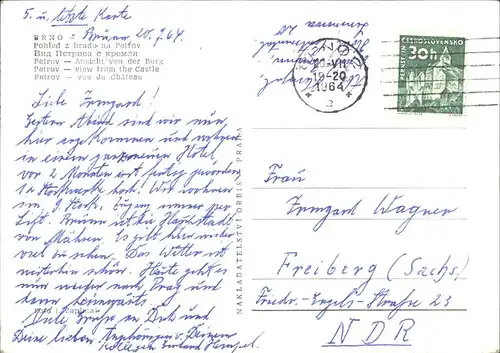 5. u. letzte Karte
Brünn 20.7.64
BRNO –
Pohled z hradu na Petrov
Вид Петрова с кремля
Petrov – Ansicht von der Burg
Petrov – view from the Castle
Petrov – vue du Château
Liebe Irmgard!
Gestern Abend sind wir nun
hier angekommen und
in einem Hotel,
vor 2 Monaten erst fertig geworden
14 Stockwerke hoch. Wir wohnen
im 9. Stock, Zugang immer per
Lift. Brünn ist die Hauptstadt
von Mähren. Es gibt hier wieder
viel zu sehen. Das Wetter ist
weiterhin schön. Heute geht es
nun wieder nach Prag und
dann heimwärts.
Viele Grüße an Dich und
Deine lieben Angehörigen v. Deinem
Kollegen Hempel.
NAKLADATELSTVÍ ORBIS PRAHA
BRNO
20.VII.
19-20
1964
2
ČESKOSLOVENSKO
30h
PERNŠTEJN
Frau
Irmgard Wagner
Freiberg (Sachs)
Friedr.-Engels-Straße 23
NDR